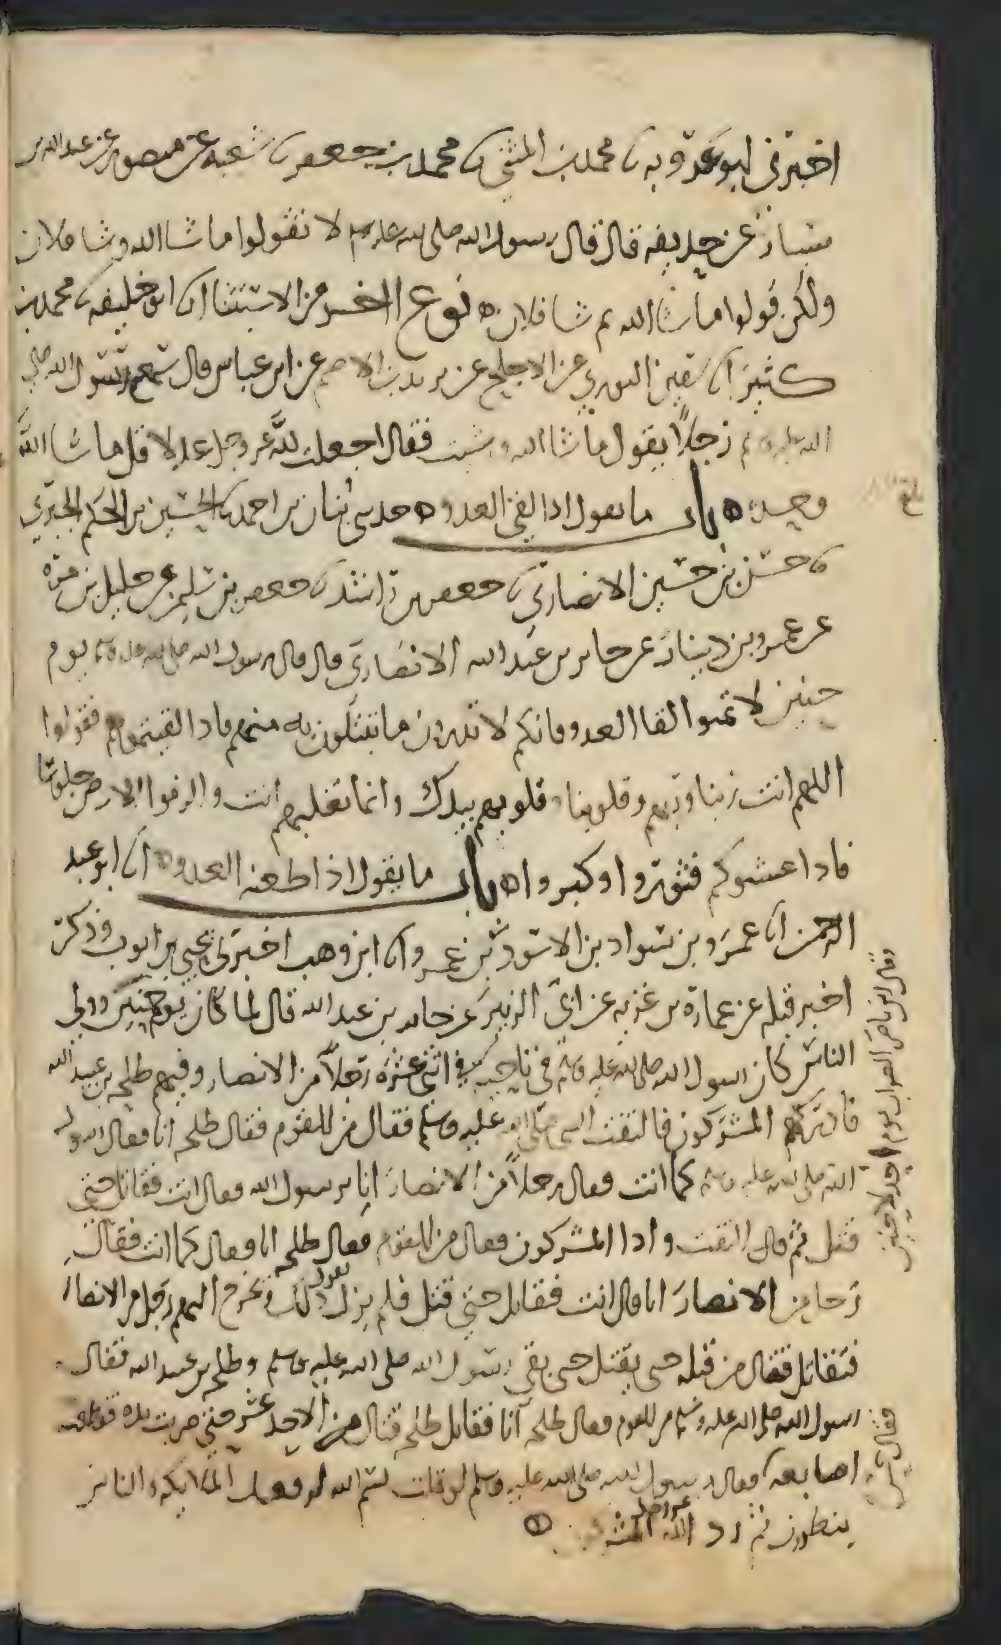 اخبرني ابو عروبة ثنا محمد بن المثنى ثنا محمد بن جعفر ثنا شعبة عن منصور عن عبد الله بن
يسار عن حذيفة قال قال رسول الله صلى الله عليه وسلم لا تقولوا ما شا الله وشا فلان
ولكن قولوا ما شا الله ثم شا فلان ه نوع اخر من الاستثنا انا ابو خليفة ثنا محمد بن
كثير انا سفين الثوري عن الاجلح عن يزيد بن الاصم عن ابن عباس قال سمع رسول الله صلى
الله عليه وسلم رجلا يقول ما شا الله وشيت فقال اجعلت لله عز وجل عدلا قل ما شا الله
وحده ه باب ما يقول اذا لقي العدو ه حدثني بنان بن احمد ثنا الحسين بن الحكم الحبري
ثنا حسن بن حسين الانصاري ثنا جعفر بن راشد ثنا جعفر بن سليمن عن خليل بن مرة
عن عمرو بن دينار عن جابر بن عبد الله الانصاري قال قال رسول الله صلى الله عليه وسلم يوم
حنين لا تمنوا لقا العدو فانكم لا تدرون ما تبتلون به منهم فاذا لقيتموهم فقولوا
اللهم انت ربنا وربهم وقلوبنا وقلوبهم بيدك وانما تغلبهم انت والزموا الارض جلوسا
فاذا غشوكم فثوروا وكبروا ه باب ما يقول اذا طعنه العدو ه انا ابو عبد
الرحمن انا عمرو بن سواد بن الاسود بن عمرو انا ابن وهب اخبرني يحيى بن ايوب وذكر
اخر قبله عن عمارة بن غزية عن ابي الزبير عن جابر بن عبد الله قال لما كان يوم حنين وولى
الناس كان رسول الله صلى الله عليه وسلم في ناحية في اثني عشر رجلا من الانصار وفيهم طلحة بن عبيد الله
فادركهم المشركون فالتفت النبي صلى الله عليه وسلم فقال من للقوم فقال طلحة انا فقال رسول
الله صلى الله عليه وسلم كما انت فقال رجل من الانصار انا يا رسول الله فقال انت فقاتل حتى
قتل ثم قال التفت واذا المشركون فقال من للقوم فقال طلحة انا فقال كما انت فقال
رجل من الانصار انا قال انت فقاتل حتى قتل فلم يزل يقول ذلك ويخرج اليهم رجل من الانصار
فيقاتل قتال من قبله حتى يقتل حتى بقي رسول الله صلى الله عليه وسلم وطلحة بن عبيد الله فقال
رسول الله صلى الله عليه وسلم من للقوم فقال طلحة انا فقاتل طلحة قتال الاحد عشر حتى ضربت يده فقطعت
اصابعه فقال رسول الله صلى الله عليه وسلم لو قلت بسم الله لرفعتك الملائكة والناس
ينظرون ثم رد الله عز وجل المشركين ه
بلغ
وقال الصواب يوم احد لا حنين
فقال حس